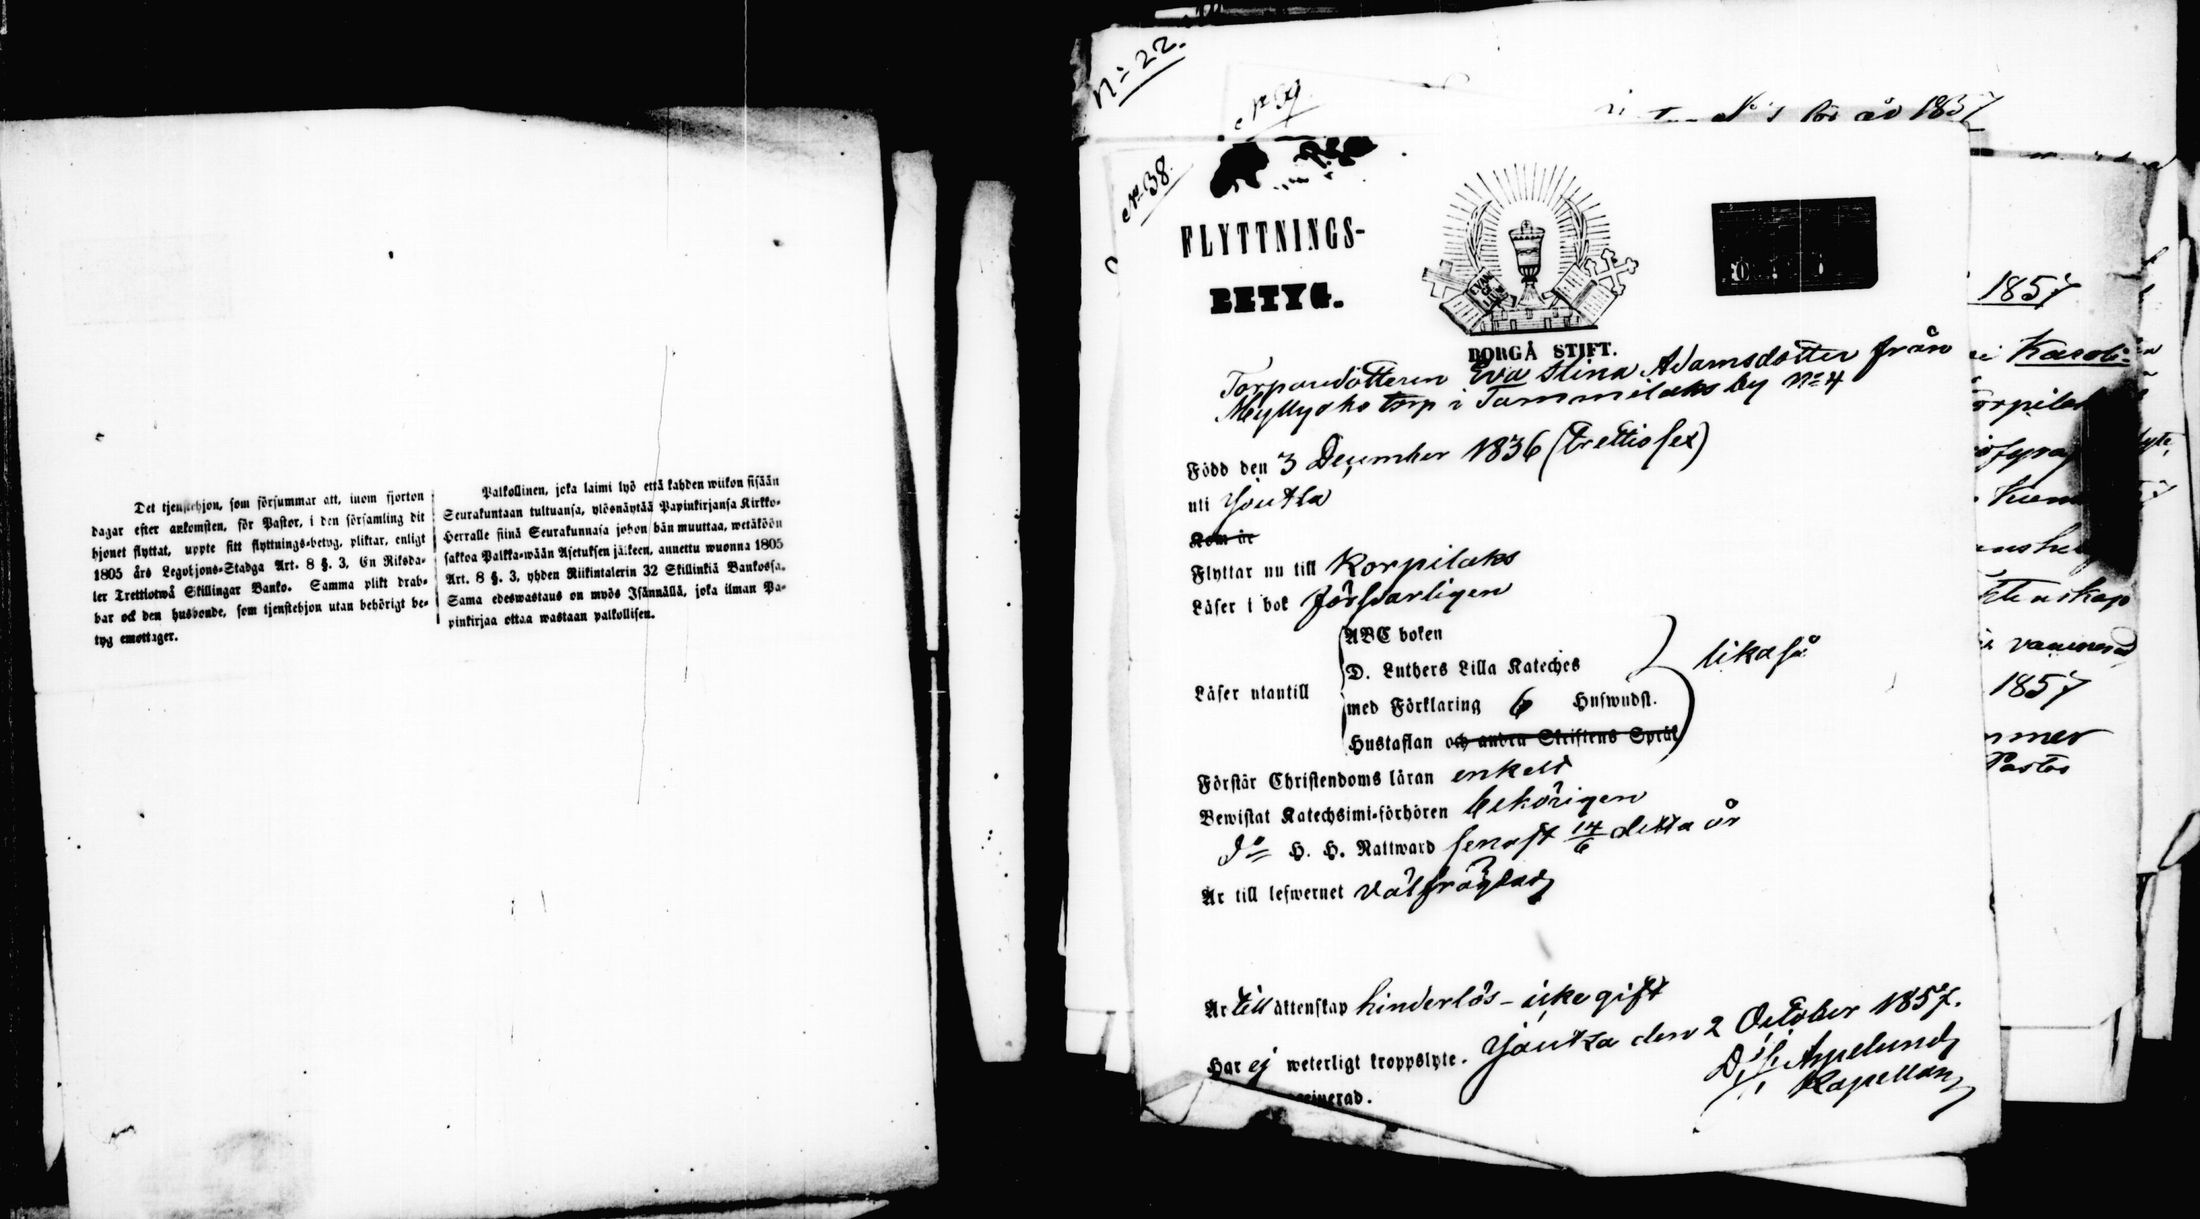 Det tjenstehjon, som försummar att, inom fjorton
dagar efter ankomsten, för Pastor, i den församling dit
hjonet flyttat, uppte sitt flyttnings-betyg, pliktar, enligt
1805 års Legohjons-Stadga Art. 8 §. 3, En Riksda-
ler Trettiotwå Skillingar Banko. Samma plikt drab-
bar ock den husbonde, som tjenstehjon utan behörigt be-
tyg emottager.
Palkollinen, joka laimi lyö että kahden wiikon sisään
Seurakuntaan tultuansa, ylösnäytää Papinkirjansa Kirkko-
Herralle siinä Seurakunnasa johon hän muuttaa, wetäköön
sakkoa Palkka-wään Asetuksen jälkeen, annettu wuonna 1805
Art. 8 §. 3, yhden Riikintalerin 32 Skillinkiä Bankossa.
Sama edeswastaus on myös Isännällä, joka ilman Pa-
pinkirjaa ottaa wastaan palkollisen.
N:o 22.
för år 1857
No 38.
FLYTTNINGS-
BETYG.
EVAN
GE
LIUM
BORGÅ STIFT.
Torparedottren Eva Stina Adamsdotter från
torp i Tammilaks by No 4
Född den 3 December 1836 (trettiosex)
uti Joutsa
Kom år
Flyttar nu till Korpilaks
Läser i bok försvarligen
Läser utantill
ABC boken
D. Luthers Lilla Kateches
med Förklaring 6 Hufwudst.
Hustaflan och andra Skriftens Språk
likaså
Förstår Christendoms läran enkelt
Bewistat Katechsimi-förhören behörigen
Do H. H. Nattward senast 14/6 detta år
Är till lefwernet välfrägdad
Är till äktenskap hinderlös - icke gift
Har ej weterligt kroppslyte.
Joutsa den 2 October 1857.
Appelund
Kapellan
1857
Karoli-
1857
Pastor